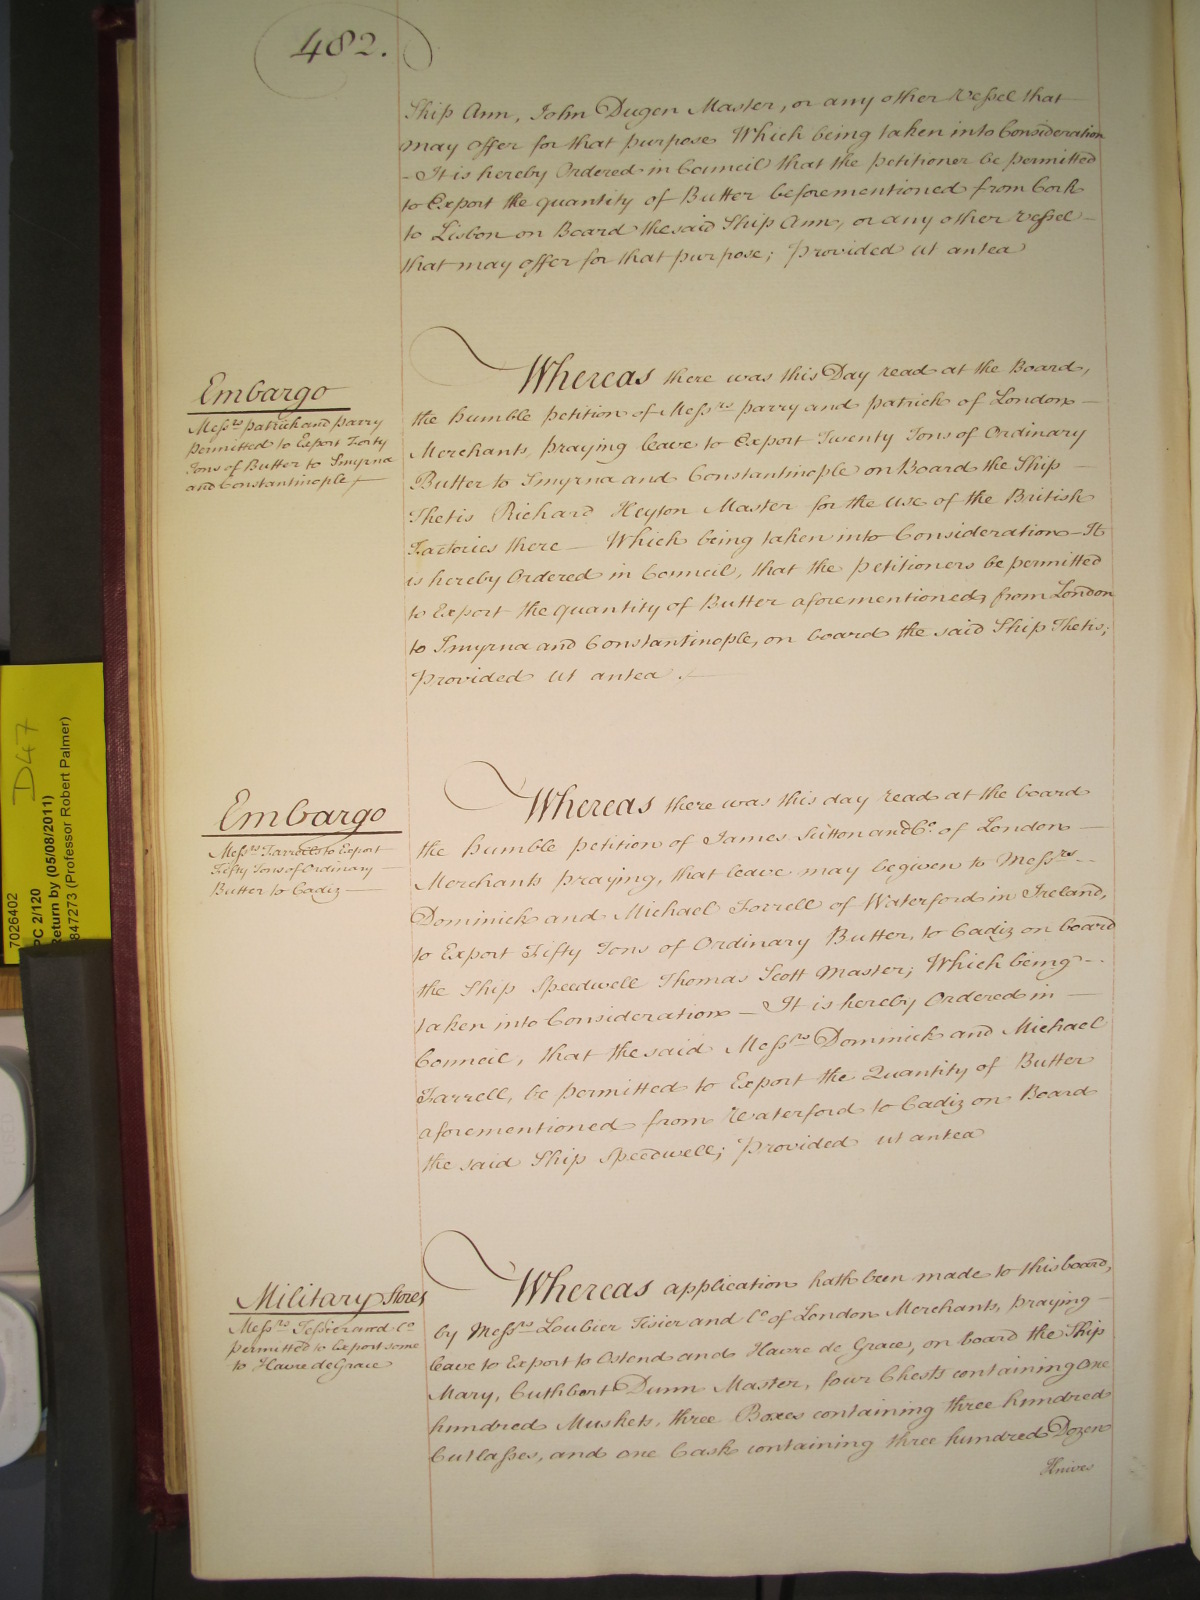 482.
Ship Ann, John Dugen Master, or any other Vessel that
may offer for that purpose Which being taken into Consideration
- It is hereby Ordered in Council that the petitioner be permitted
to Export the quantity of Butter beforementioned from Cork
to Lisbon on Board the said Ship Ann, or any other Vessel -
that may offer for that purpose; provided ut antea
Embargo
Messrs patrick and parry
permitted to Export Forty
Tons of Butter to Smyrna
and Constantinople
Whereas there was this Day read at the Board,
the humble petition of Messrs parry and patrick of London -
Merchants, praying leave to Export Twenty Tons of Ordinary
Butter to Smyrna and Constantinople on Board the Ship -
Thetis Richard Heyton Master for the use of the British
Factories there - Which being taken into Consideration - It
is hereby Ordered in Council, that the petitioners be permitted
to Export the quantity of Butter aforementioned, from London
to Smyrna and Constantinople, on board the said Ship Thetis;
provided ut antea.
Embargo
Messrs Farrell to Export
Fifty Tons of Ordinary -
Butter to Cadiz -
Whereas there was this day read at the board
the humble petition of James Sutton and Co. of London -
Merchants praying, that leave may be given to Messrs. -
Dominick and Michael Forrell of Waterford in Ireland,
to Export Fifty Tons of Ordinary Butter, to Cadiz on board
the Ship Speedwell Thomas Scott Master; Which being -
taken into Consideration - It is hereby Ordered in -
Council, that the said Messrs Dominick and Michael
Farrell, be permitted to Export the Quantity of Butter
aforementioned from Waterford to Cadiz on Board
the said Ship Speedwell; provided ut antea
Military Stores
Messrs Tessier and Co
permitted to Export some
to Havre de Grace
Whereas application hath been made to this board,
by Messrs Loubier Tisier and Co of London Merchants, praying -
leave to Export to Ostend and Havre de Grace, on board the Ship
Mary, Cuthbert Dunn Master, four Chests containing One
hundred Muskets, three Boxes containing three hundred
Cutlasses, and one Cask containing three hundred Dozen
Knives
D47
7026402
PC 2/120
Return by (05/08/2011)
847273 (Professor Robert Palmer)